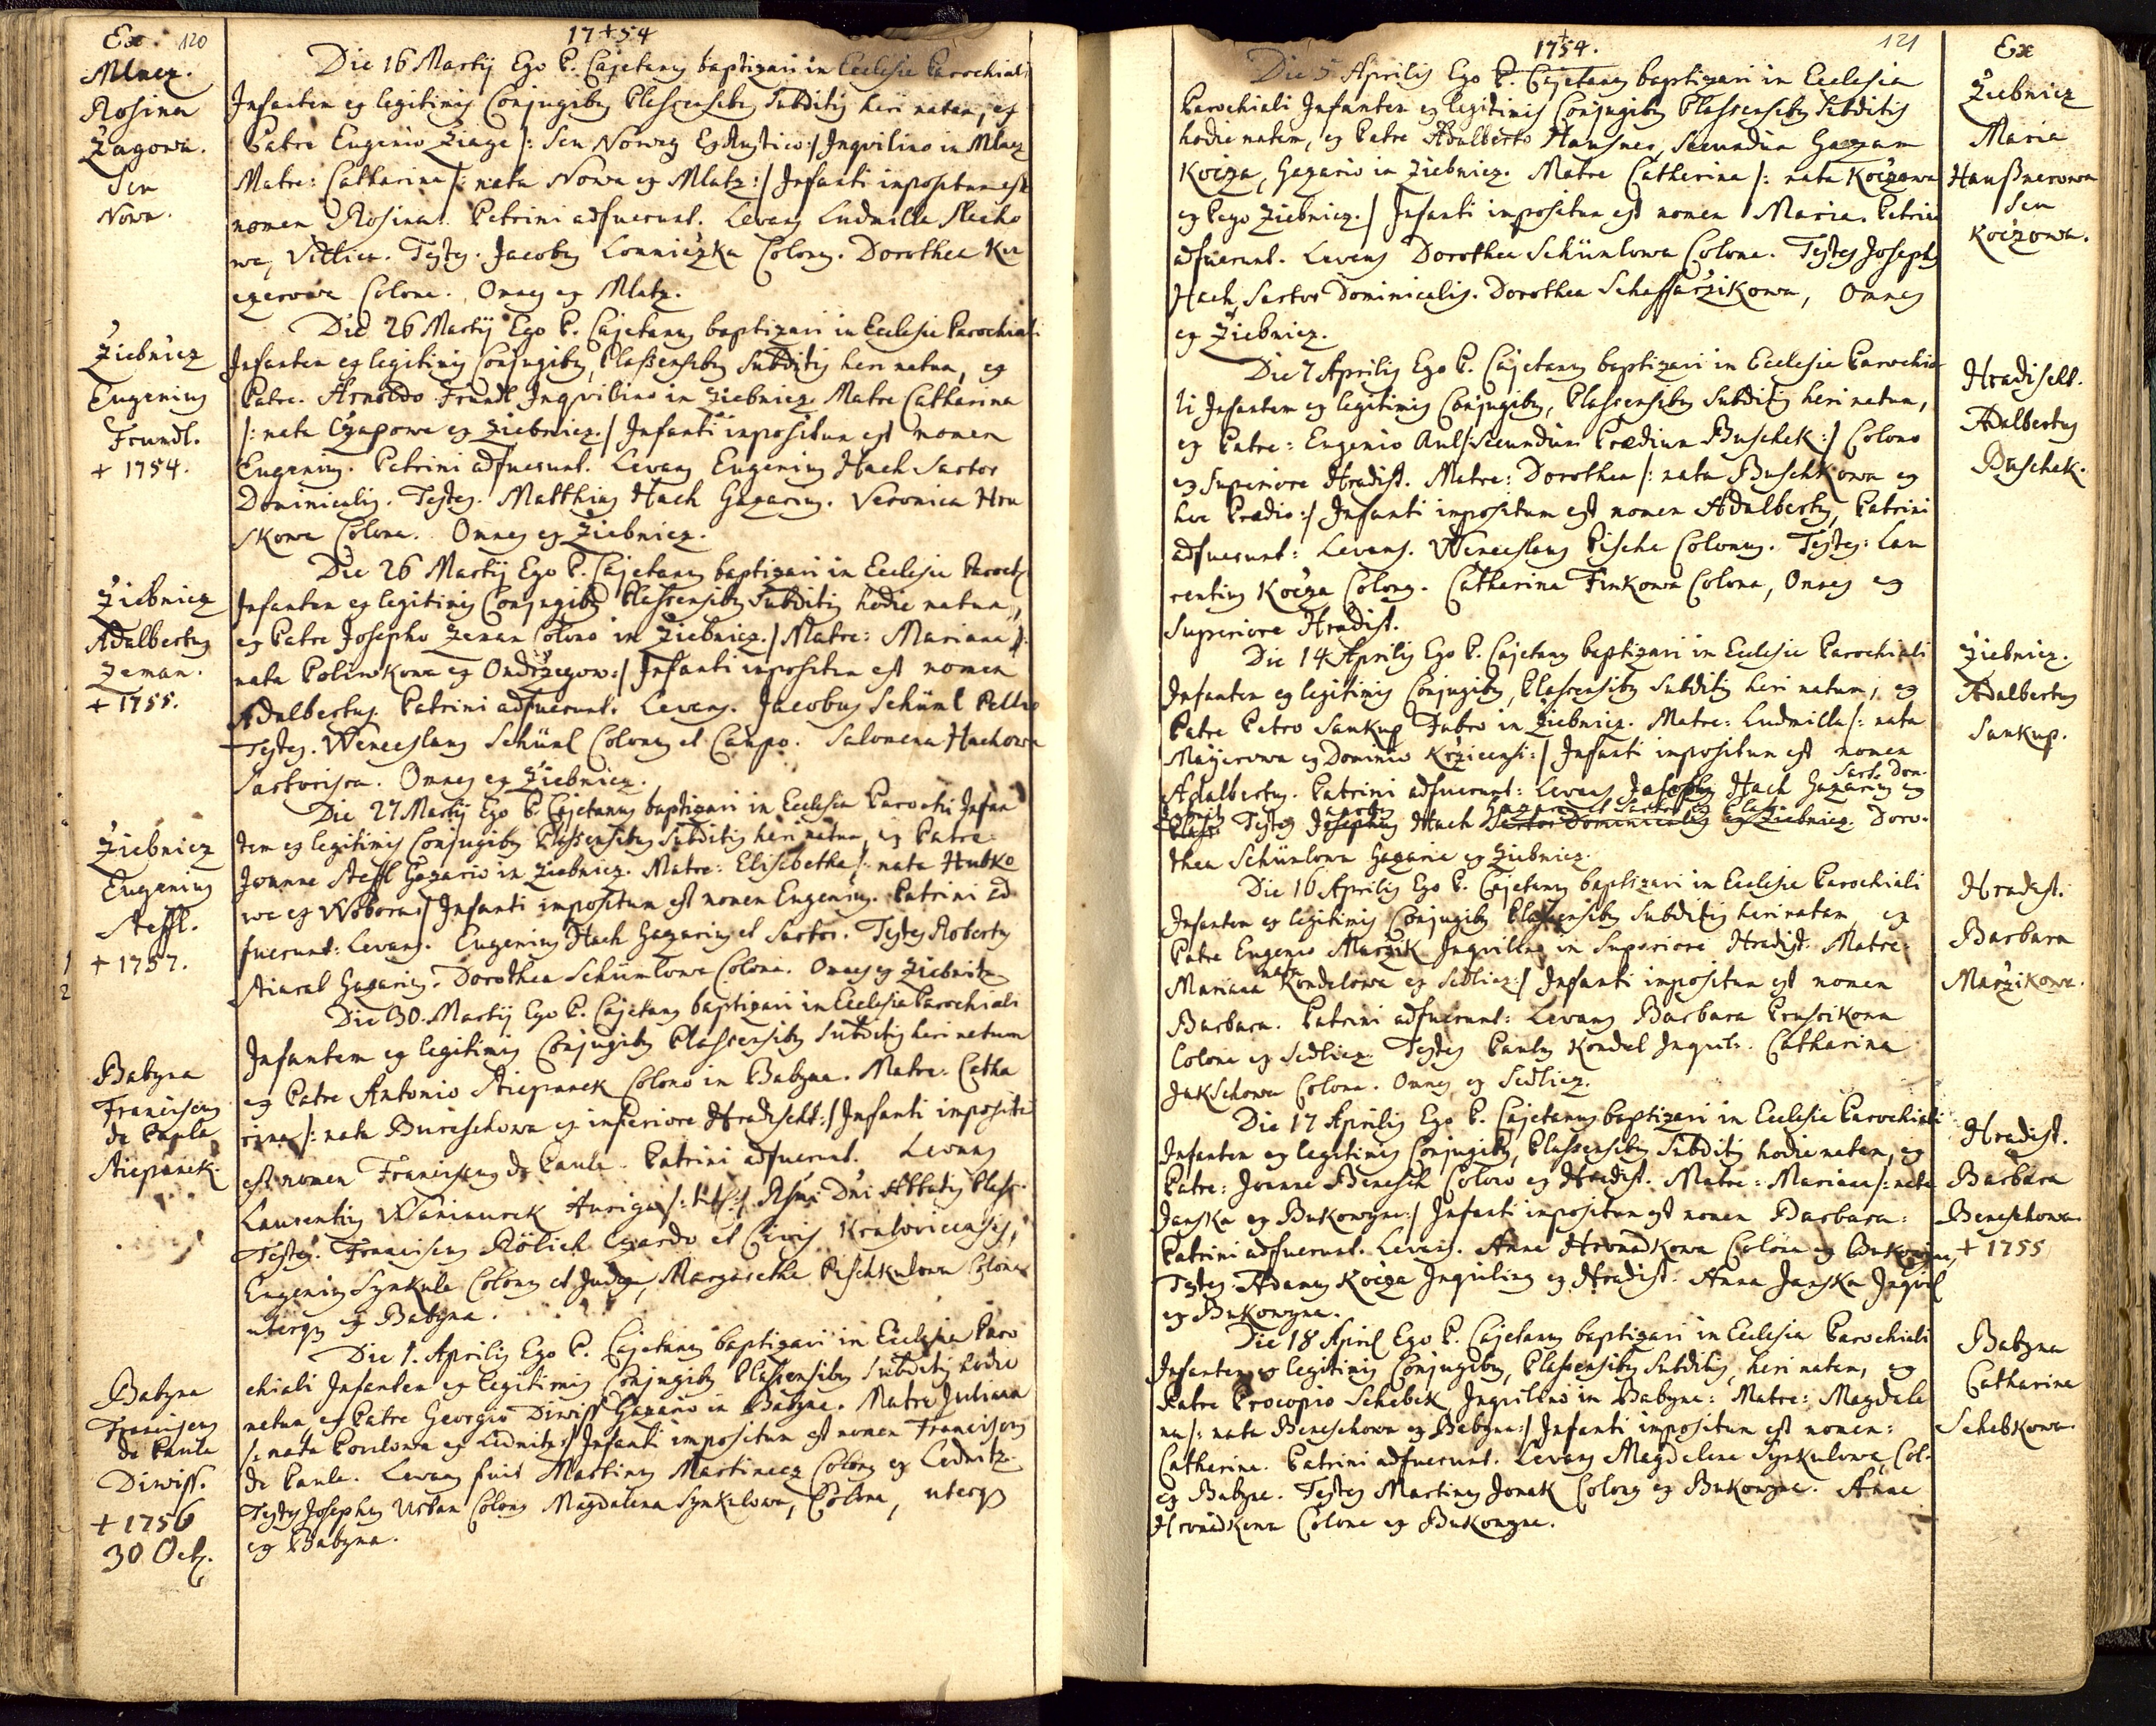 Ex 120
17+54
Mlacz.
Rosina
Żagowa.
Seu
Nowa.
Die 16 Martij Ego P. Cajetanus baptizavi in Ecclesia Parochiali
Infantem ex legitimis Conjugibus Plassensibus Subditis heri natam, ex
Patre Eugenio Żiage /: Seu Nowey Ex Rustico :/ Inquilino in Mlacz
Matre: Catharina /: nata Nowa ex Mlatz :/ Infanti impositum est
nomen Rosina. Patrini adfuerunt. Levans Ludmilla Plecho
wa, Testes. Jacobus Lonniczka Colonus. Dorothea Ku
czerowa Colona. Omnes ex Mlatz.
Żiebnicz
Eugenius
Frundl.
+ 1754.
Die 26 Martij Ego P. Cajetanus baptizavi in Ecclesia Parochiali
Infantem ex legitimis Conjugibus, Plassensibus Subditis heri natum, ex
Patre. Arnoldo Frundl Inquilino in Żiebnicz Matre Catharina
/: nata Czapowa ex Żiebnicz. / Infanti impositum est nomen
Eugenius. Patrini adfuerunt. Levans Eugenius Hach Sartor
Dominicalis. Testes. Matthias Hach Gazarius. Veronica Hru
skowa Colona. Omnes ex Żiebnicz.
Żiebnicz
Adalbertus
Zeman.
+ 1755.
Die 26 Martij Ego P. Cajetanus baptizavi in Ecclesia Paroch
Infantem ex legitimis Conjugibus Plassensibus Subditis hodie natum,
ex Patre Josepho Zeman Colono in Żiebnicz. / Matre: Mariana /:
nata Poliwkowa ex Ondrzegow :/ Infanti impositum est nomen
Adalbertus. Patrini adfuerunt. Levans. Jacobus Schüml Pellio
Testes. Wenceslaus Schüml Colonus et Caupo. Salomena Hachowa
Sartorissa. Omnes ex Żiebnicz.
Żiebnicz
Eugenius
Steffl.
+ 1757.
1
2
Die 27 Martij Ego P. Cajetanus baptizavi in Ecclesia Parochi Infan
tem ex legitimis Conjugibus Plassensibus Subditis heri natum, ex Patre
Joanne Steffl Gazario in Żiebnicz. Matre: Elisabetha /: nata Hubko
wa ex Woborn / Infanti impositum est nomen Eugenius. Patrini ad
fuerunt: Levans. Eugenius Hach Gazarius et Sartor. Testes Robertus
Stiaral Gazarius. Dorothea Schümlowa Colona. Omnes ex Żiebnitz
Babyna
Franciscus
de Paula
Stiepanek.
Die 30. Martij Ego P. Cajetanus baptizavi in Ecclesia Parochiali
Infantem ex legitimis Conjugibus Plassensibus Subditis heri natum
ex Patre Antonio Stiepanek Colono in Babyna. Matre: Catha
rina /: nata Bureschowa ex inferiore Hradischt :/ Infanti impositu
est nomen Franciscus de Paula. Patrini adfuerunt. Levans
Laurentius Waninurek Auriga Rsmi Dni Abbatis Plass:
Testes. Franciscus Rölich et Civis Kralovicensis,
Eugenius Synkule Colonus et Judex, Margaretha Pischkulowa Colona
uterque ex Babyna.
Babyna
Franciscus
de Paula
Diwiss.
+ 1756
30 Oct.
Die 1. Aprilis Ego P. Cajetanus baptizavi in Ecclesia Paro
chiali Infantem ex legitimis Conjugibus Plassensibus Subditis hodie
natum ex Patre Georgio Diwiss Gazario in Babyne. Matre Juliana
/: nata Powlowa ex Lednitz :/ Infanti impositum est nomen Franciscus
de Paula. Levans fuit Martinus Martinecz Colonus ex Lednitz
Testes Josephus Urban Colonus Magdalena Synkulowa, Colona, uterque
ex Babyna.
1754.
121
Ex
Żiebnicz
Maria
Haußnerowa
Seu
Koczowa.
Die 5 Aprilis Ego P. Cajetanus baptizavi in Ecclesia
Parochiali Infantem ex legitimis Conjugibus Plassensibus Subditis
hodie natam, ex Patre Adalberto Hausner, secundum Gazam
Kocza, Gazario in Żiebnicz. Matre Catherina /: nata Koczowa
ex Pago Żiebnicz. / Infanti impositum est nomen Maria. Patrini
adfuerunt. Levans Dorothea Schümlowa Colona. Testes Josephus
Hach Sartor Dominicalis. Dorothea Schaffarzikowa, Omnes
ex Żiebnicz.
Hradischt.
Adalbertus
Buschek.
Die 7 Aprilis Ego P. Cajetanus baptizavi in Ecclesia Parochia
li Infantem ex legitimis Conjugibus, Plassensibus Subditis heri natum,
ex Patre: Eugenio Aul /: secundum Prædium Buschek :/ Colono
ex Superiore Hradist. Matre: Dorothea /: nata Buschkowa ex
hoc Prædio :/ Infanti impositum est nomen Adalbertus, Patrini
adfuerunt: Levans. Wenceslaus Pischa Colonus. Testes: Lau
rentius Kocza Colonus. Catharina Finkowa Colona, Omnes ex
Superiore Hradist.
Żiebnicz.
Adalbertus
Sankup.
Die 14 Aprilis Ego P. Cajetanus baptizavi in Ecclesia Parochiali
Infantem ex legitimis Conjugibus, Plassensibus Subditis heri natum, ex
Patre Petro Sankup Fabro in Żiebnicz. Matre: Ludmilla /: nata
Mayerowa ex Dominio Krzicensi :/ Infanti impositum est nomen
Adalbertus. Patrini adfuerunt: Levans Josephus Hach Gazarius Sart. Dom. ex
Testes Josephus Hach Sartor Dominicalis ex Żiebnicz. Doro-
thea Schümlowa Gazaria ex Żiebnicz.
Hradist.
Barbara
Marzikowa.
Die 16 Aprilis Ego P. Cajetanus baptizavi in Ecclesia Parochiali
Infantem ex legitimis Conjugibus Plassensibus Subditis heri natam ex
Patre Eugenio Marzik Inquilino in Superiori Hradist. Matre:
Mariana nata Kondelowa ex Sedlicz :/ Infanti impositum est nomen
Barbara. Patrini adfuerunt: Levans Barbara Prusikowa
Colona ex Sedlicz. Testes Paulus Kondel Inquil. Catharina
Jakschowa Colona. Omnes ex Sedlicz.
Hradist.
Barbara
Beneschowa
+ 1755
Die 17 Aprilis Ego P. Cajetanus baptizavi in Ecclesia Parochiali
Infantem ex legitimis Conjugibus, Plassensibus Subditis hodie natam, ex
Patre: Joanne Benesch Colono ex Hradist. Matre: Mariana /: nata
Janska ex Bukowyna :/ Infanti impositum est nomen Barbara:
Patrini adfuerunt. Levans. Anna Hromadkowa Colona ex Bukowyna,
Testes: Adamus Kocza Inquilinus ex Hradist. Anna Janska Inquil
ex Bukowyna.
Babyna
Catharina
Schebkowa.
Die 18 April Ego P. Cajetanus baptizavi in Ecclesia Parochiali
Infantem ex legitimis Conjugibus, Plassensibus Subditis, heri natam, ex
Patre Procopio Schebek, Inquilino in Babyne: Matre: Magdale
na /: nata Beneschowa ex Babyne :/ Infanti impositum est nomen:
Catharina. Patrini adfuerunt. Levans Magdalena Synkulowa, Col-
ex Babyne. Testes Martinus Jonak Colonus ex Bukowyne. Anna
Hromadkowa Colona ex Bukowyne.